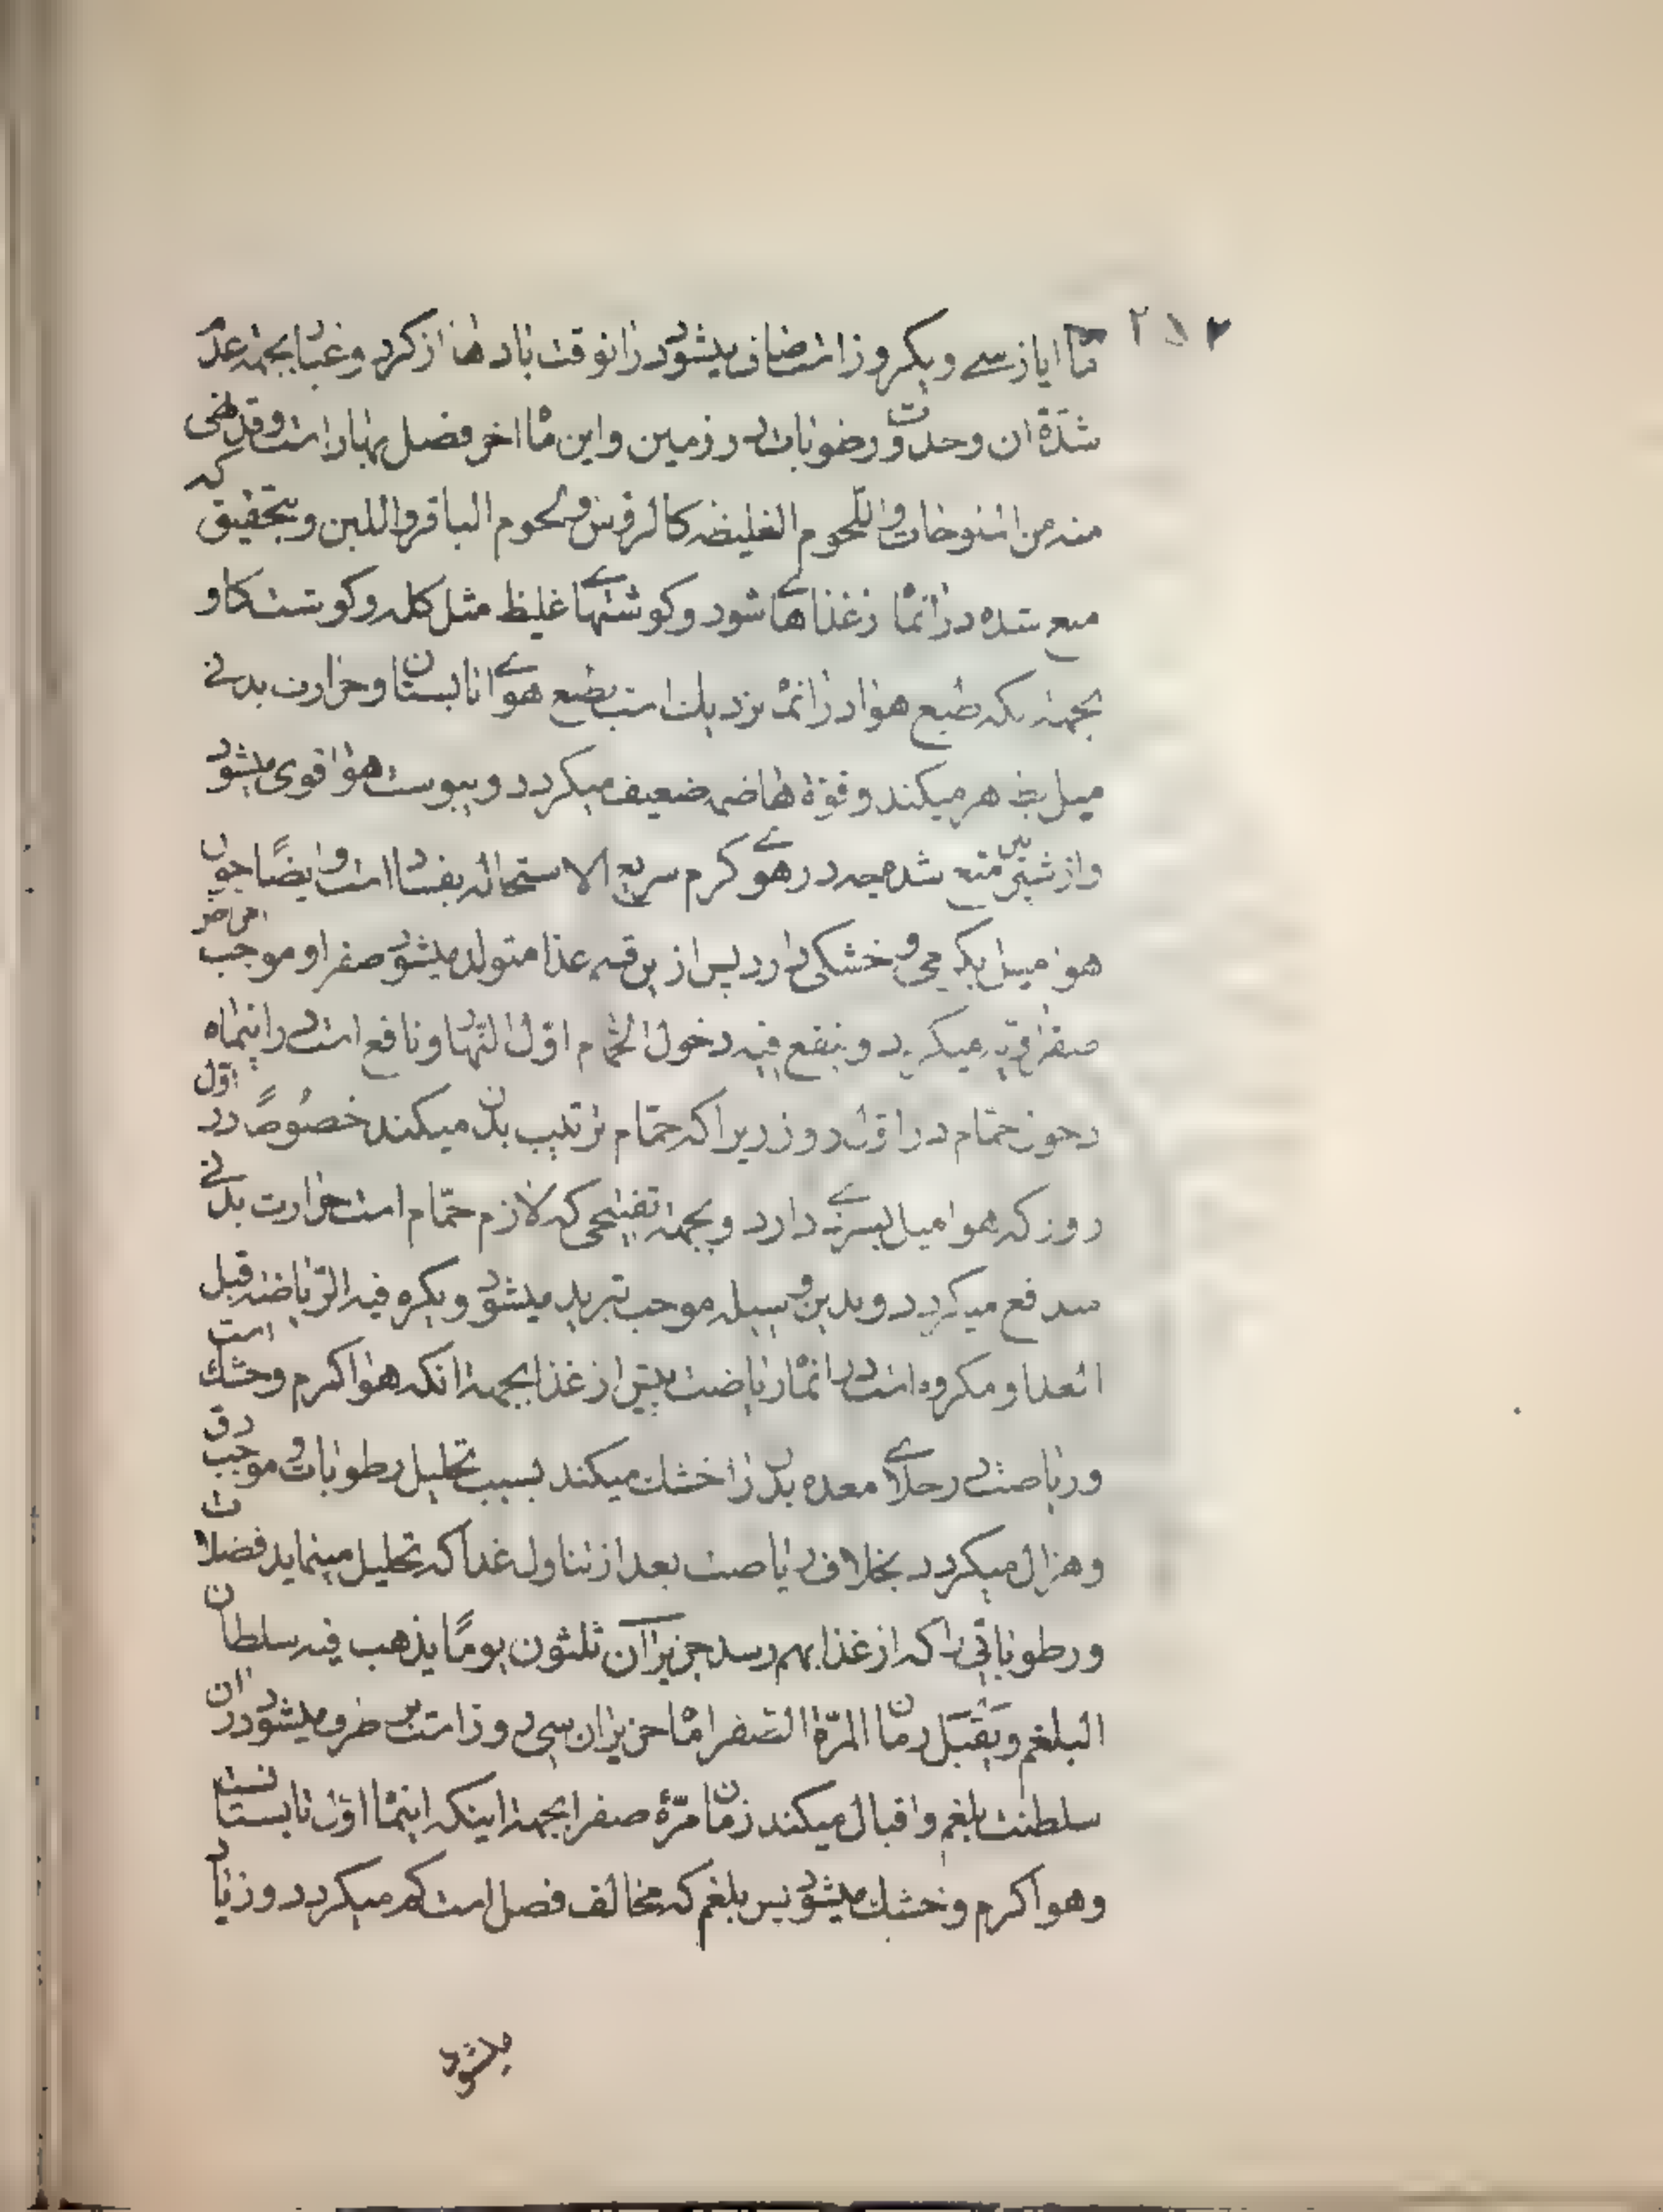 ماه ایار سی و یکروز است صاف میشود در انوقت بادها از کرد و غبار بجهة عدم
شدة ان وحدت ورضوبات در زمین و این ماه اخر فصل بهار است وقد نهی
منه من الملوحات واللحوم الغلیظه کالرؤس ولحوم الباقر واللبن و بتحقیق که
منع شده در انماه از غذاهای شور و کوشتهای غلیظ مثل کله و کوشت کاو
بجهة انکه طبع هوا در انماه نزدیك است بطبع هوای تابستان و حرارت بدنی
میل بظاهر میکند و قوة هاضمه ضعیف میکردد و یبوست هوا قوی میشود
و از شیر نیز منع شده چه در هوای کرم سریع الاستحاله بفساد است و ایضا چون
هوا میل بکرمی و خشکی دارد پس از این قسم غذا متولد میشود صفرا و موجب امراض
صفراویه میکردد و ینفع فیه دخول الحمام اول النهار و نافع است در اینماه
دخول حمام در اول روز زیرا که حمام ترتیب بدن میکند خصوصًا در اول
روز که هوا میل بسردی دارد و بجهة تفتیحی که لازم حمام است حرارت بدنی
مندفع میکردد و بدین وسیله موجب تبرید میشود و یکره فیه الریاضة قبل
الغذاء و مکروه است در انماه ریاضت پیش از غذا بجهة انکه هوا کرم و خشك است
و ریاضت در خلای معده بدن را خشك میکند بسبب تحلیل رطوبات و موجب دق
و هزال میکردد بخلاف ریاضت بعد از تناول غذا که تحلیل مینماید فضلات
و رطوباتی را که از غذا بهم رسد حزیران ثلثون یومًا یذهب فیه سلطان
البلغم و یقبل زمان المرّة الصفرا ماه حزیران سی روز است بر طرف میشود در ان
سلطنت بلغم و اقبال میکند زمان مرّهٔ صفرا بجهة اینکه اینماه اول تابستانست
و هوا کرم و خشك میشود پس بلغم که مخالف فصل است کم میکردد و زیاد
میشود